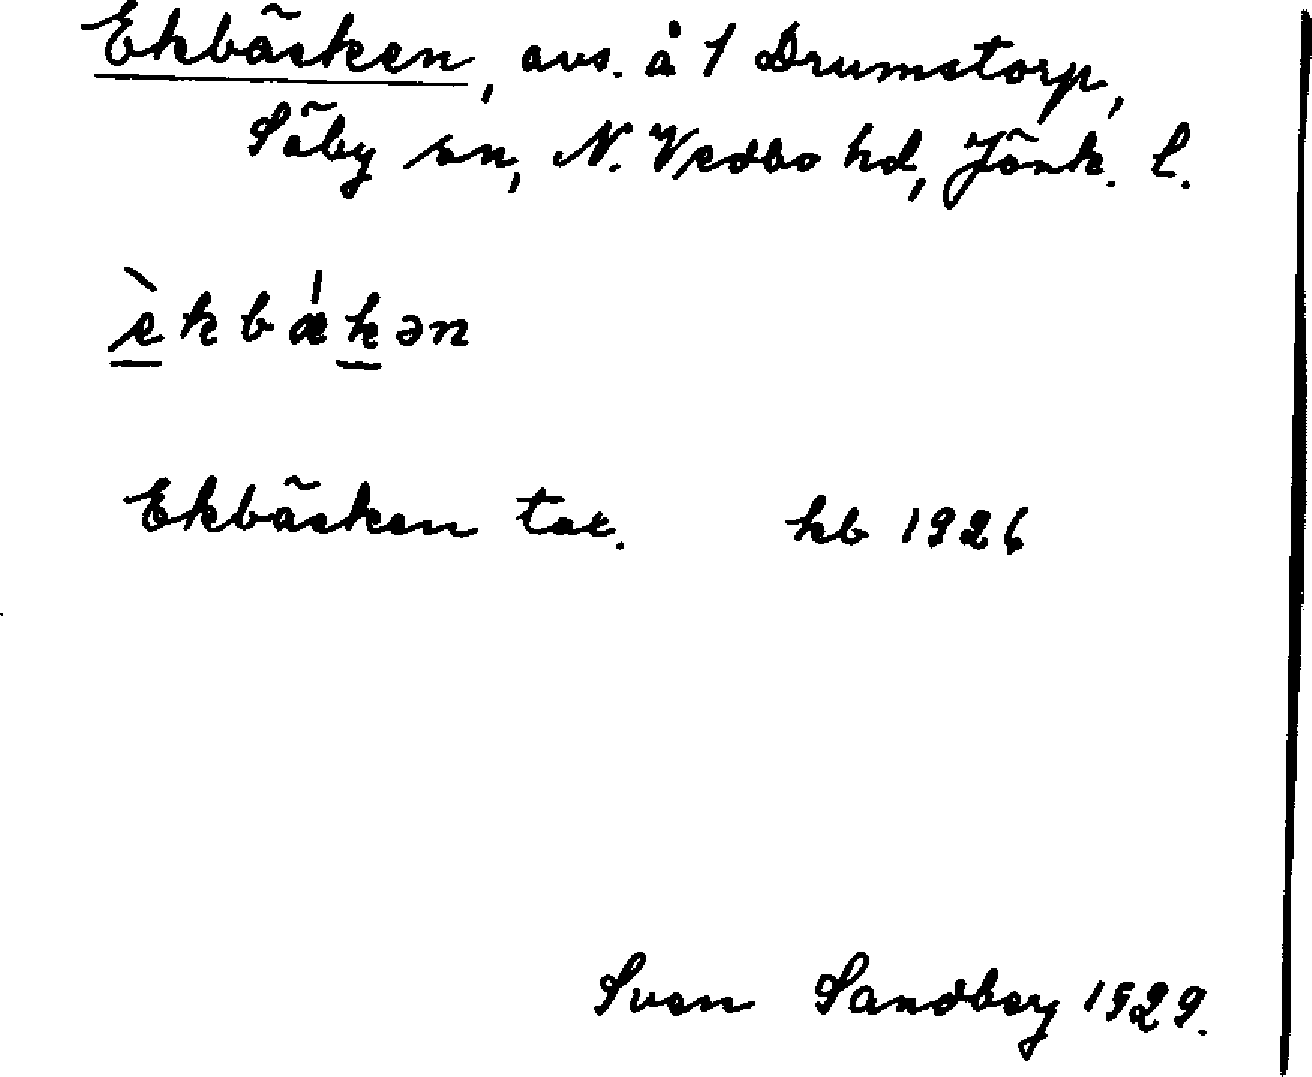 Ekbäcken, avs. å 1 Drumstorp,
Säby sn, N. Vedbo hd, Jönk. l.
è̱kbæ̍ḵən
Ekbäcken tax. kb 1926
Sven Sandberg 1929.